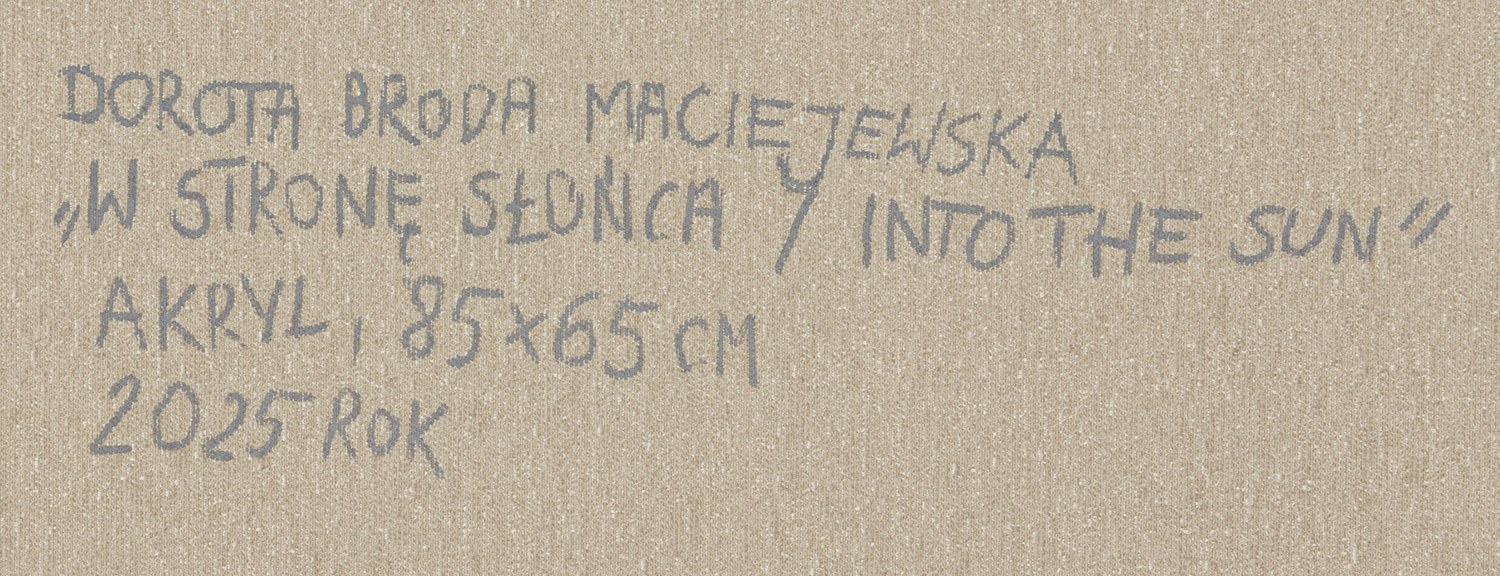 DOROTA BRODA MACIEJEWSKA
„W STRONĘ SŁOŃCA / INTO THE SUN”
AKRYL, 85x65 CM
2025 ROK